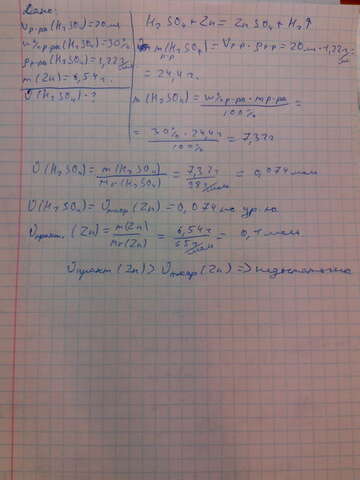 Дано:
Vр-ра(H₂SO₄)=20мл
w%р-ра(H₂SO₄)=30%
ρр-ра(H₂SO₄)=1,22г/мл
m(Zn)=6,54г.
ν(H₂SO₄)-?
H₂SO₄+Zn=ZnSO₄+H₂↑
m р-р(H₂SO₄)=Vр-р·ρр-р=20мл·1,22г/мл
=24,4г.
m(H₂SO₄)=w%р-ра·mр-ра/100%=
=30%·24,4г/100%=7,32г
ν(H₂SO₄)=m(H₂SO₄)/Mr(H₂SO₄)=7,32г/98г/моль=0,074моль
ν(H₂SO₄)=νтеор(Zn)=0,074 по ур-ю
νпракт.(Zn)=m(Zn)/Mr(Zn)=6,54г/65г/моль=0,1моль
νпракт(Zn)>νтеор(Zn)=>недостаточно